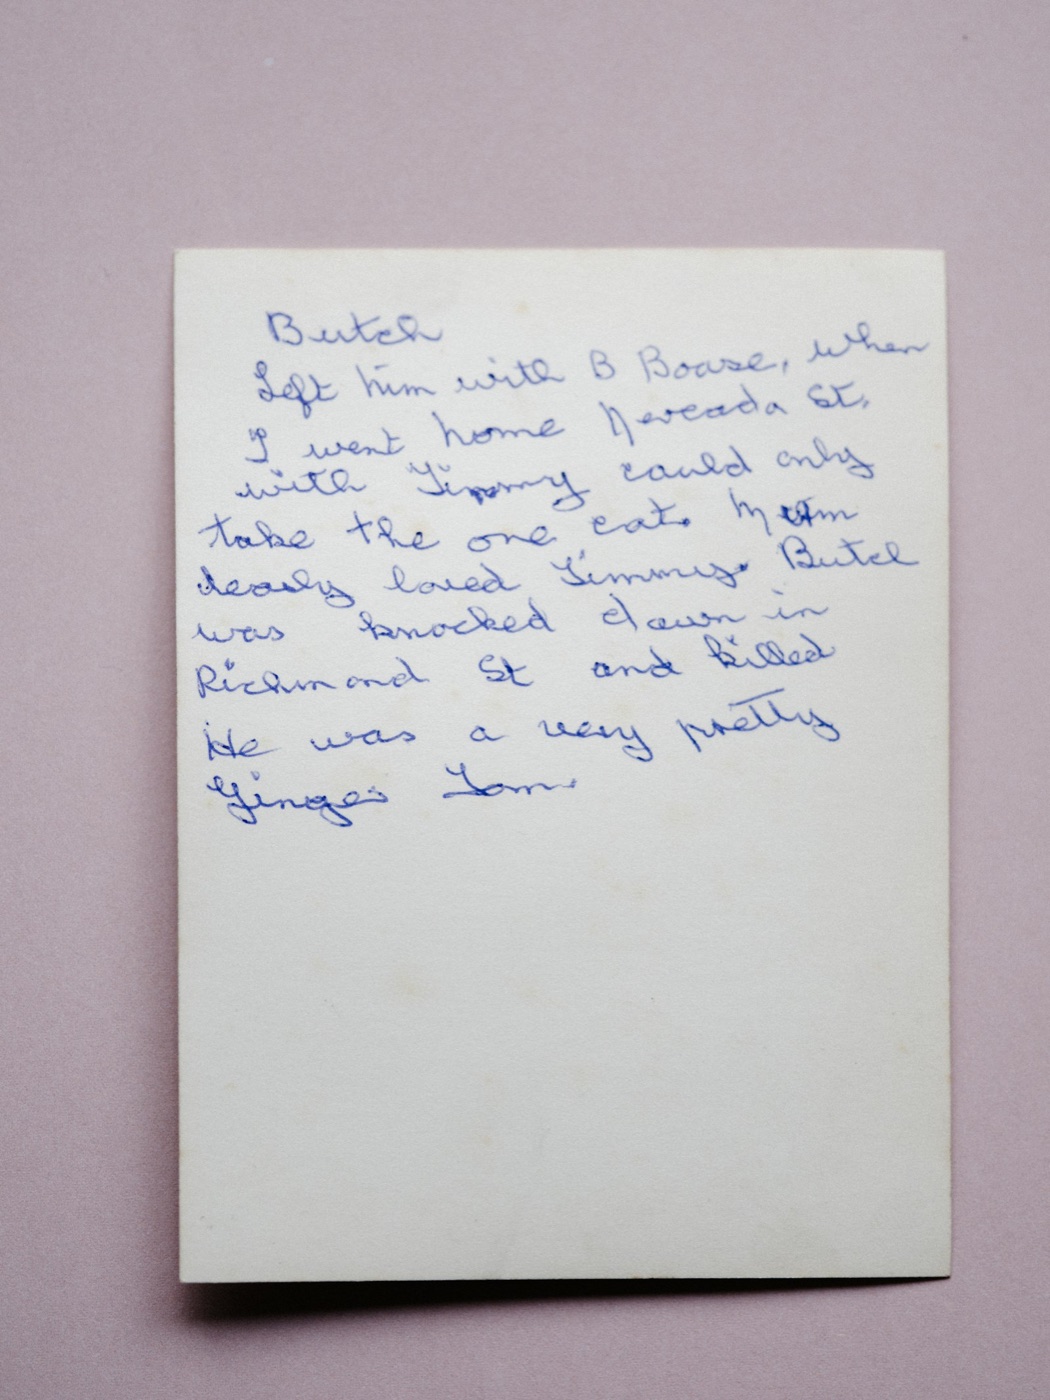 Butch
Left him with B Boase, when
I went home Nevada St.
with Timmy could only
take the one cat. Mum
dearly loved Timmy. Butch
was knocked down in
Richmond St and killed
He was a very pretty
Ginger Tom